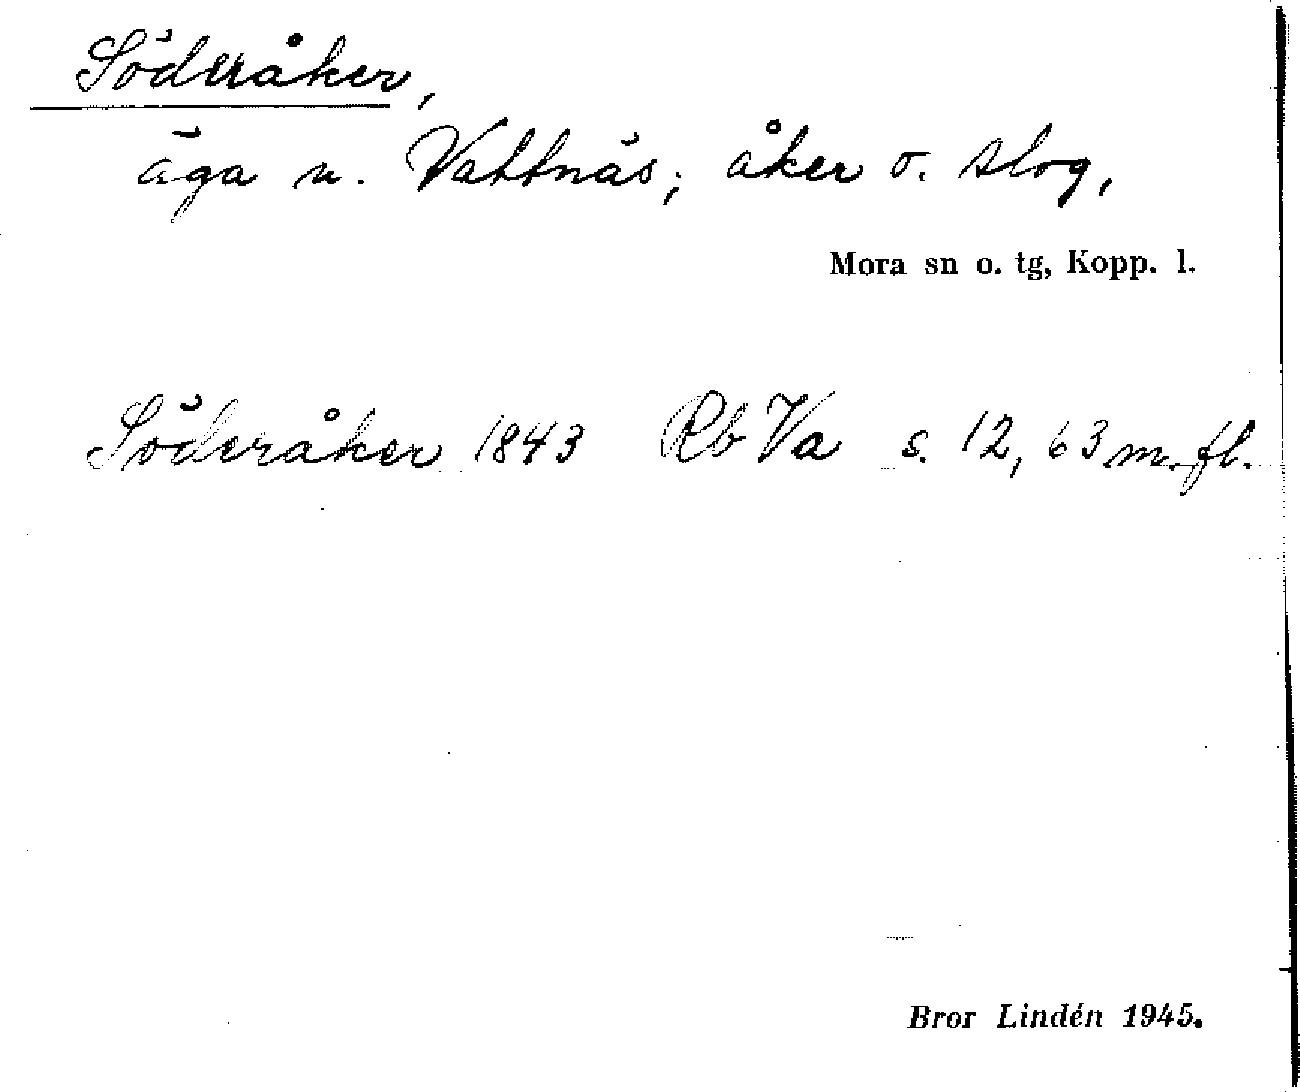 Söderåker,
äga u. Vattnäs; åker o. slog,
Mora sn o. tg, Kopp. l.
Söderåker 1843 Rb Va s. 12, 63 m. fl.
Bror Lindén 1945.